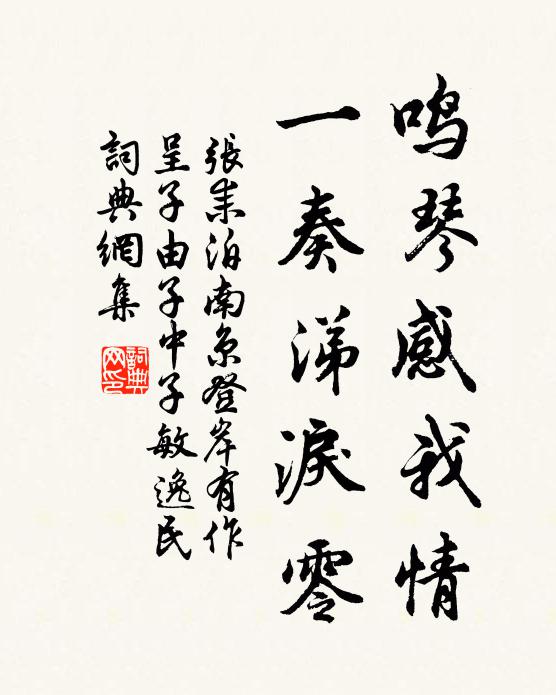 鸣琴感我情
一奏涕淚零
張耒泊南京登岸有作
呈子由子中子敏逸民
詞典網集
詞典网印